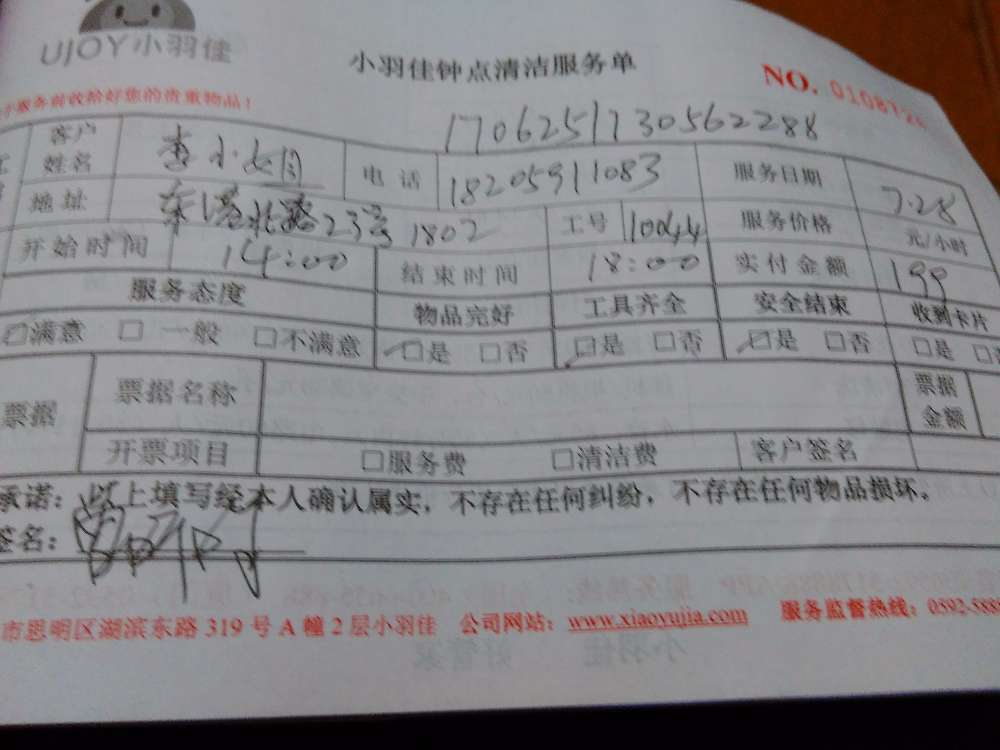 UJOY小羽佳
小羽佳钟点清洁服务单
NO. 01087
服务前收给好您的贵重物品！
17062517730562288
客户姓名 李小 电话 18205911083 服务日期 7.28
地址 北路23号 1802 工号 10044 服务价格 元/小时
开始时间 14:00 结束时间 18:00 实付金额 199
服务态度 物品完好 工具齐全 安全结束 收到卡片
☑满意 □一般 □不满意 ☑是 □否 ☑是 □否 ☑是 □否 □是 □
票据 票据名称 票据金额
开票项目 □服务费 □清洁费 客户签名
承诺：以上填写经本人确认属实，不存在任何纠纷，不存在任何物品损坏。
签名：
市思明区湖滨东路 319 号 A 幢 2 层小羽佳 公司网站：www.xiaoyujia.com 服务监督热线：0592-588